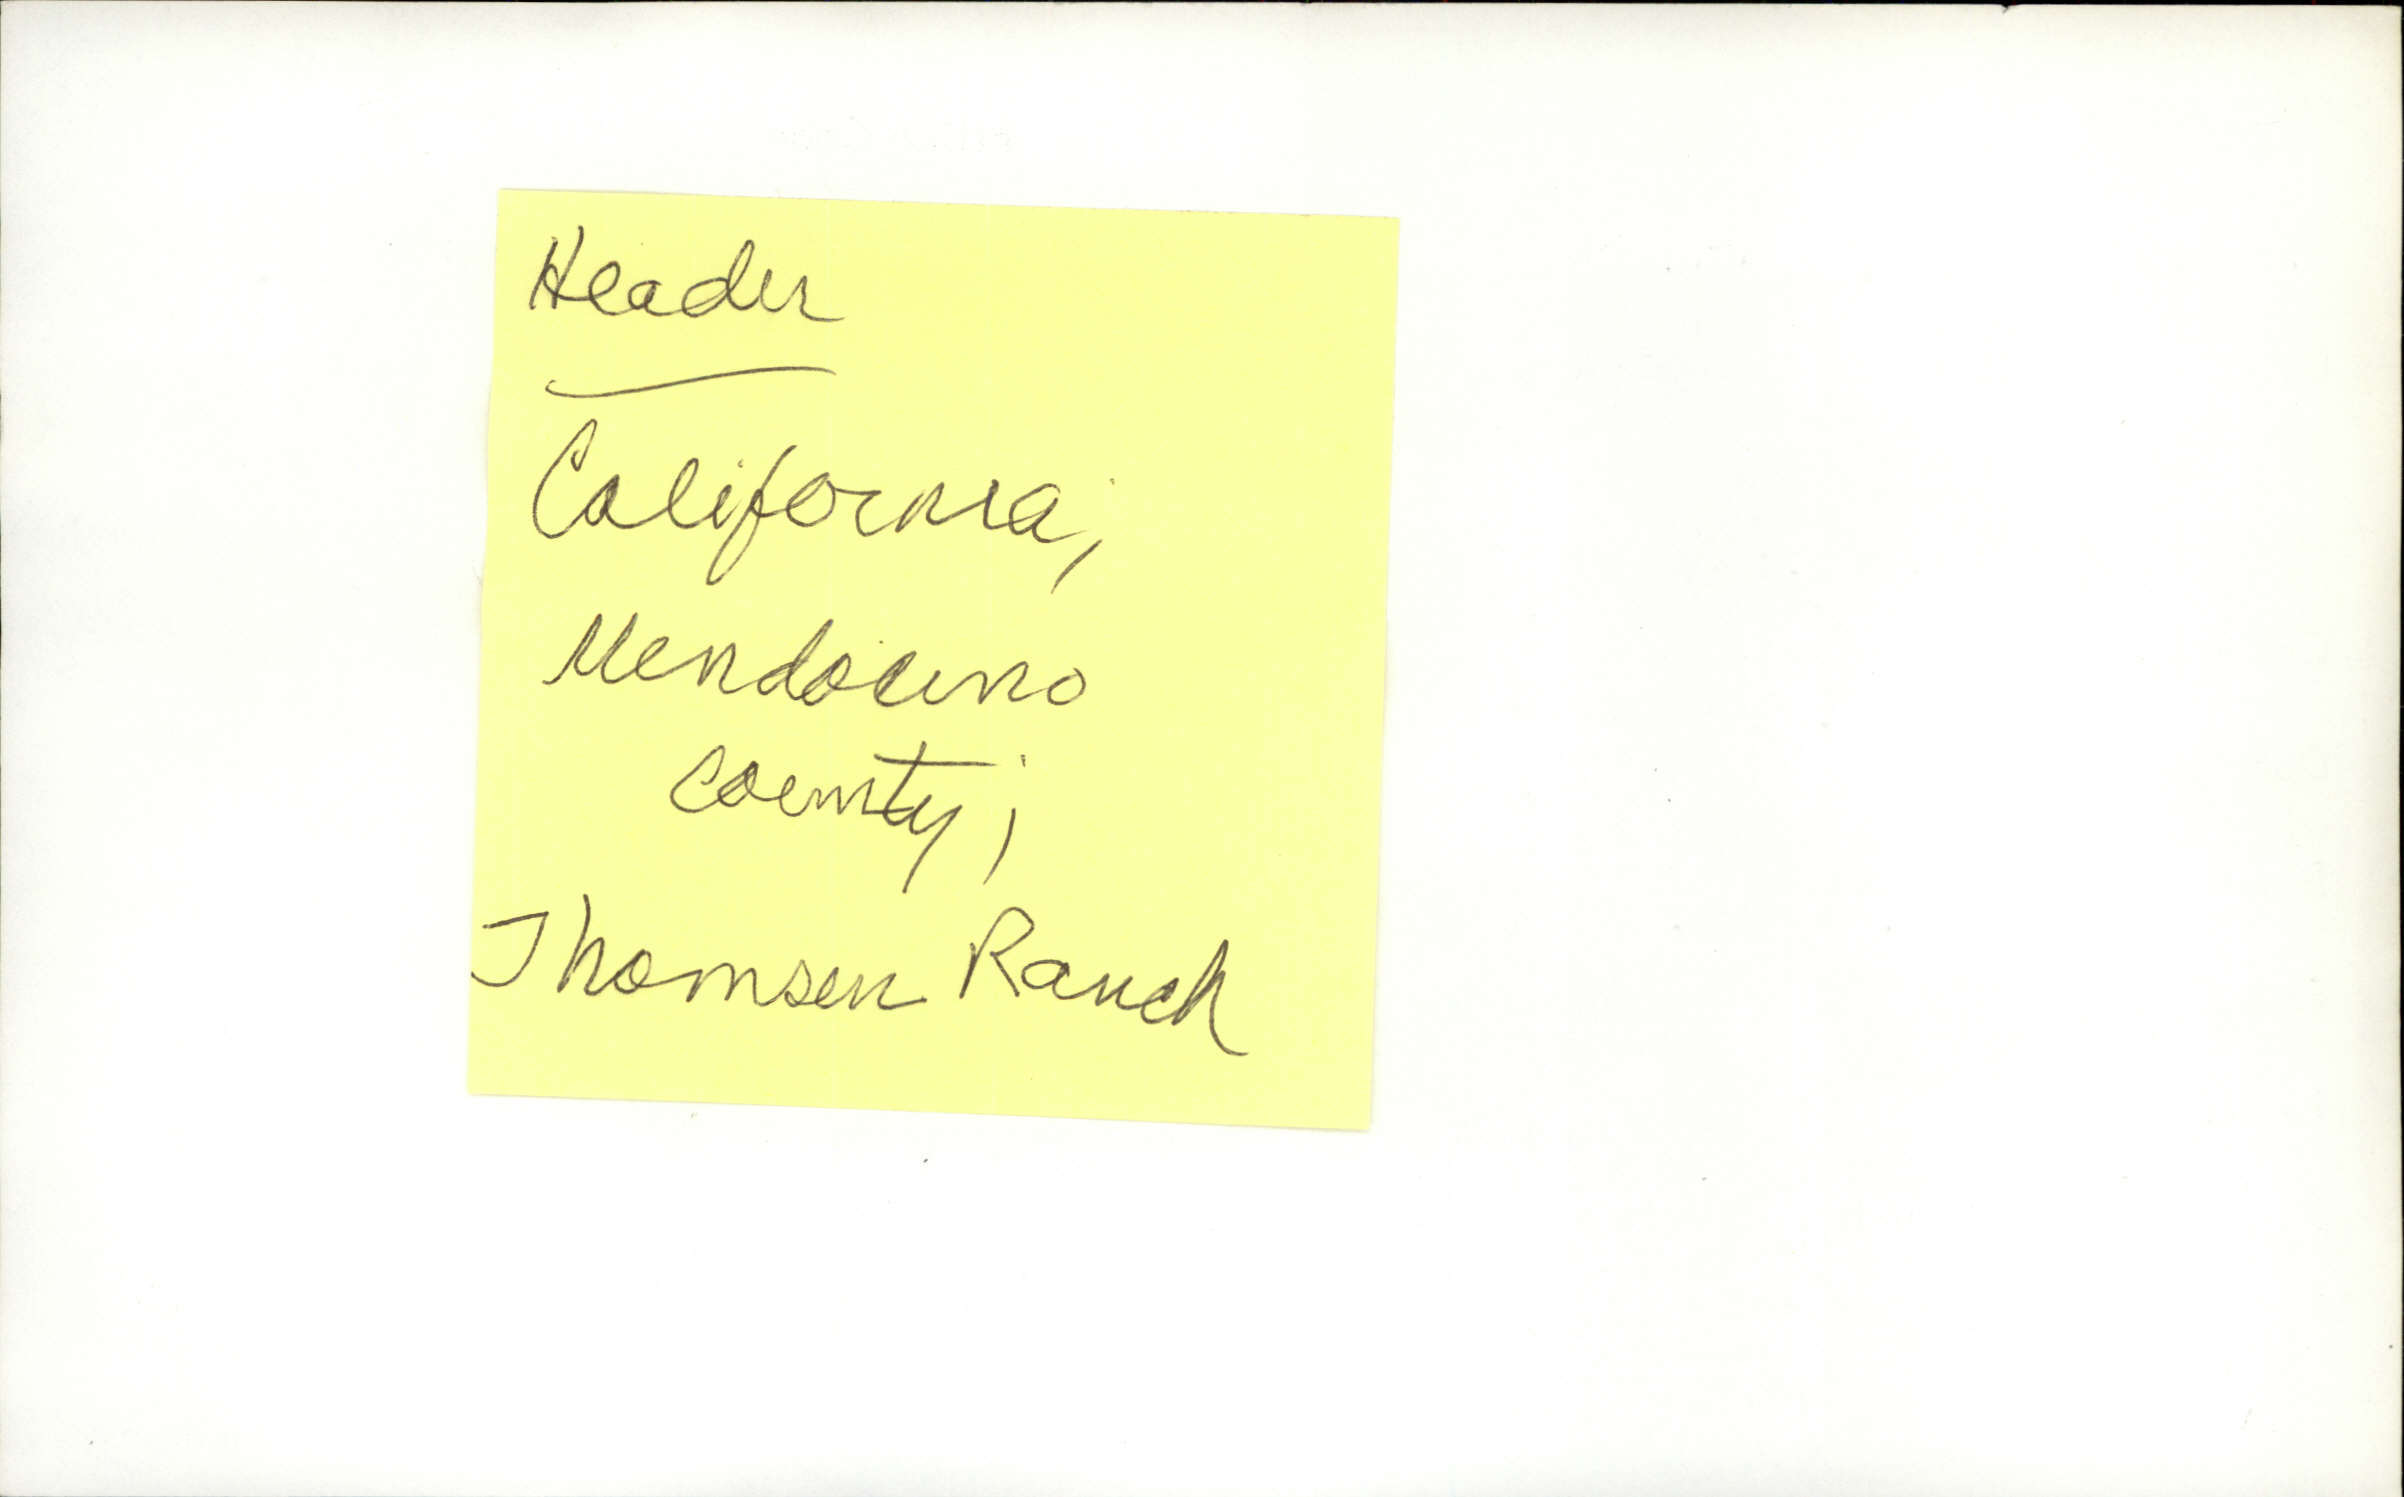 Header
California,
Mendocino
county;
Thomsen Ranch